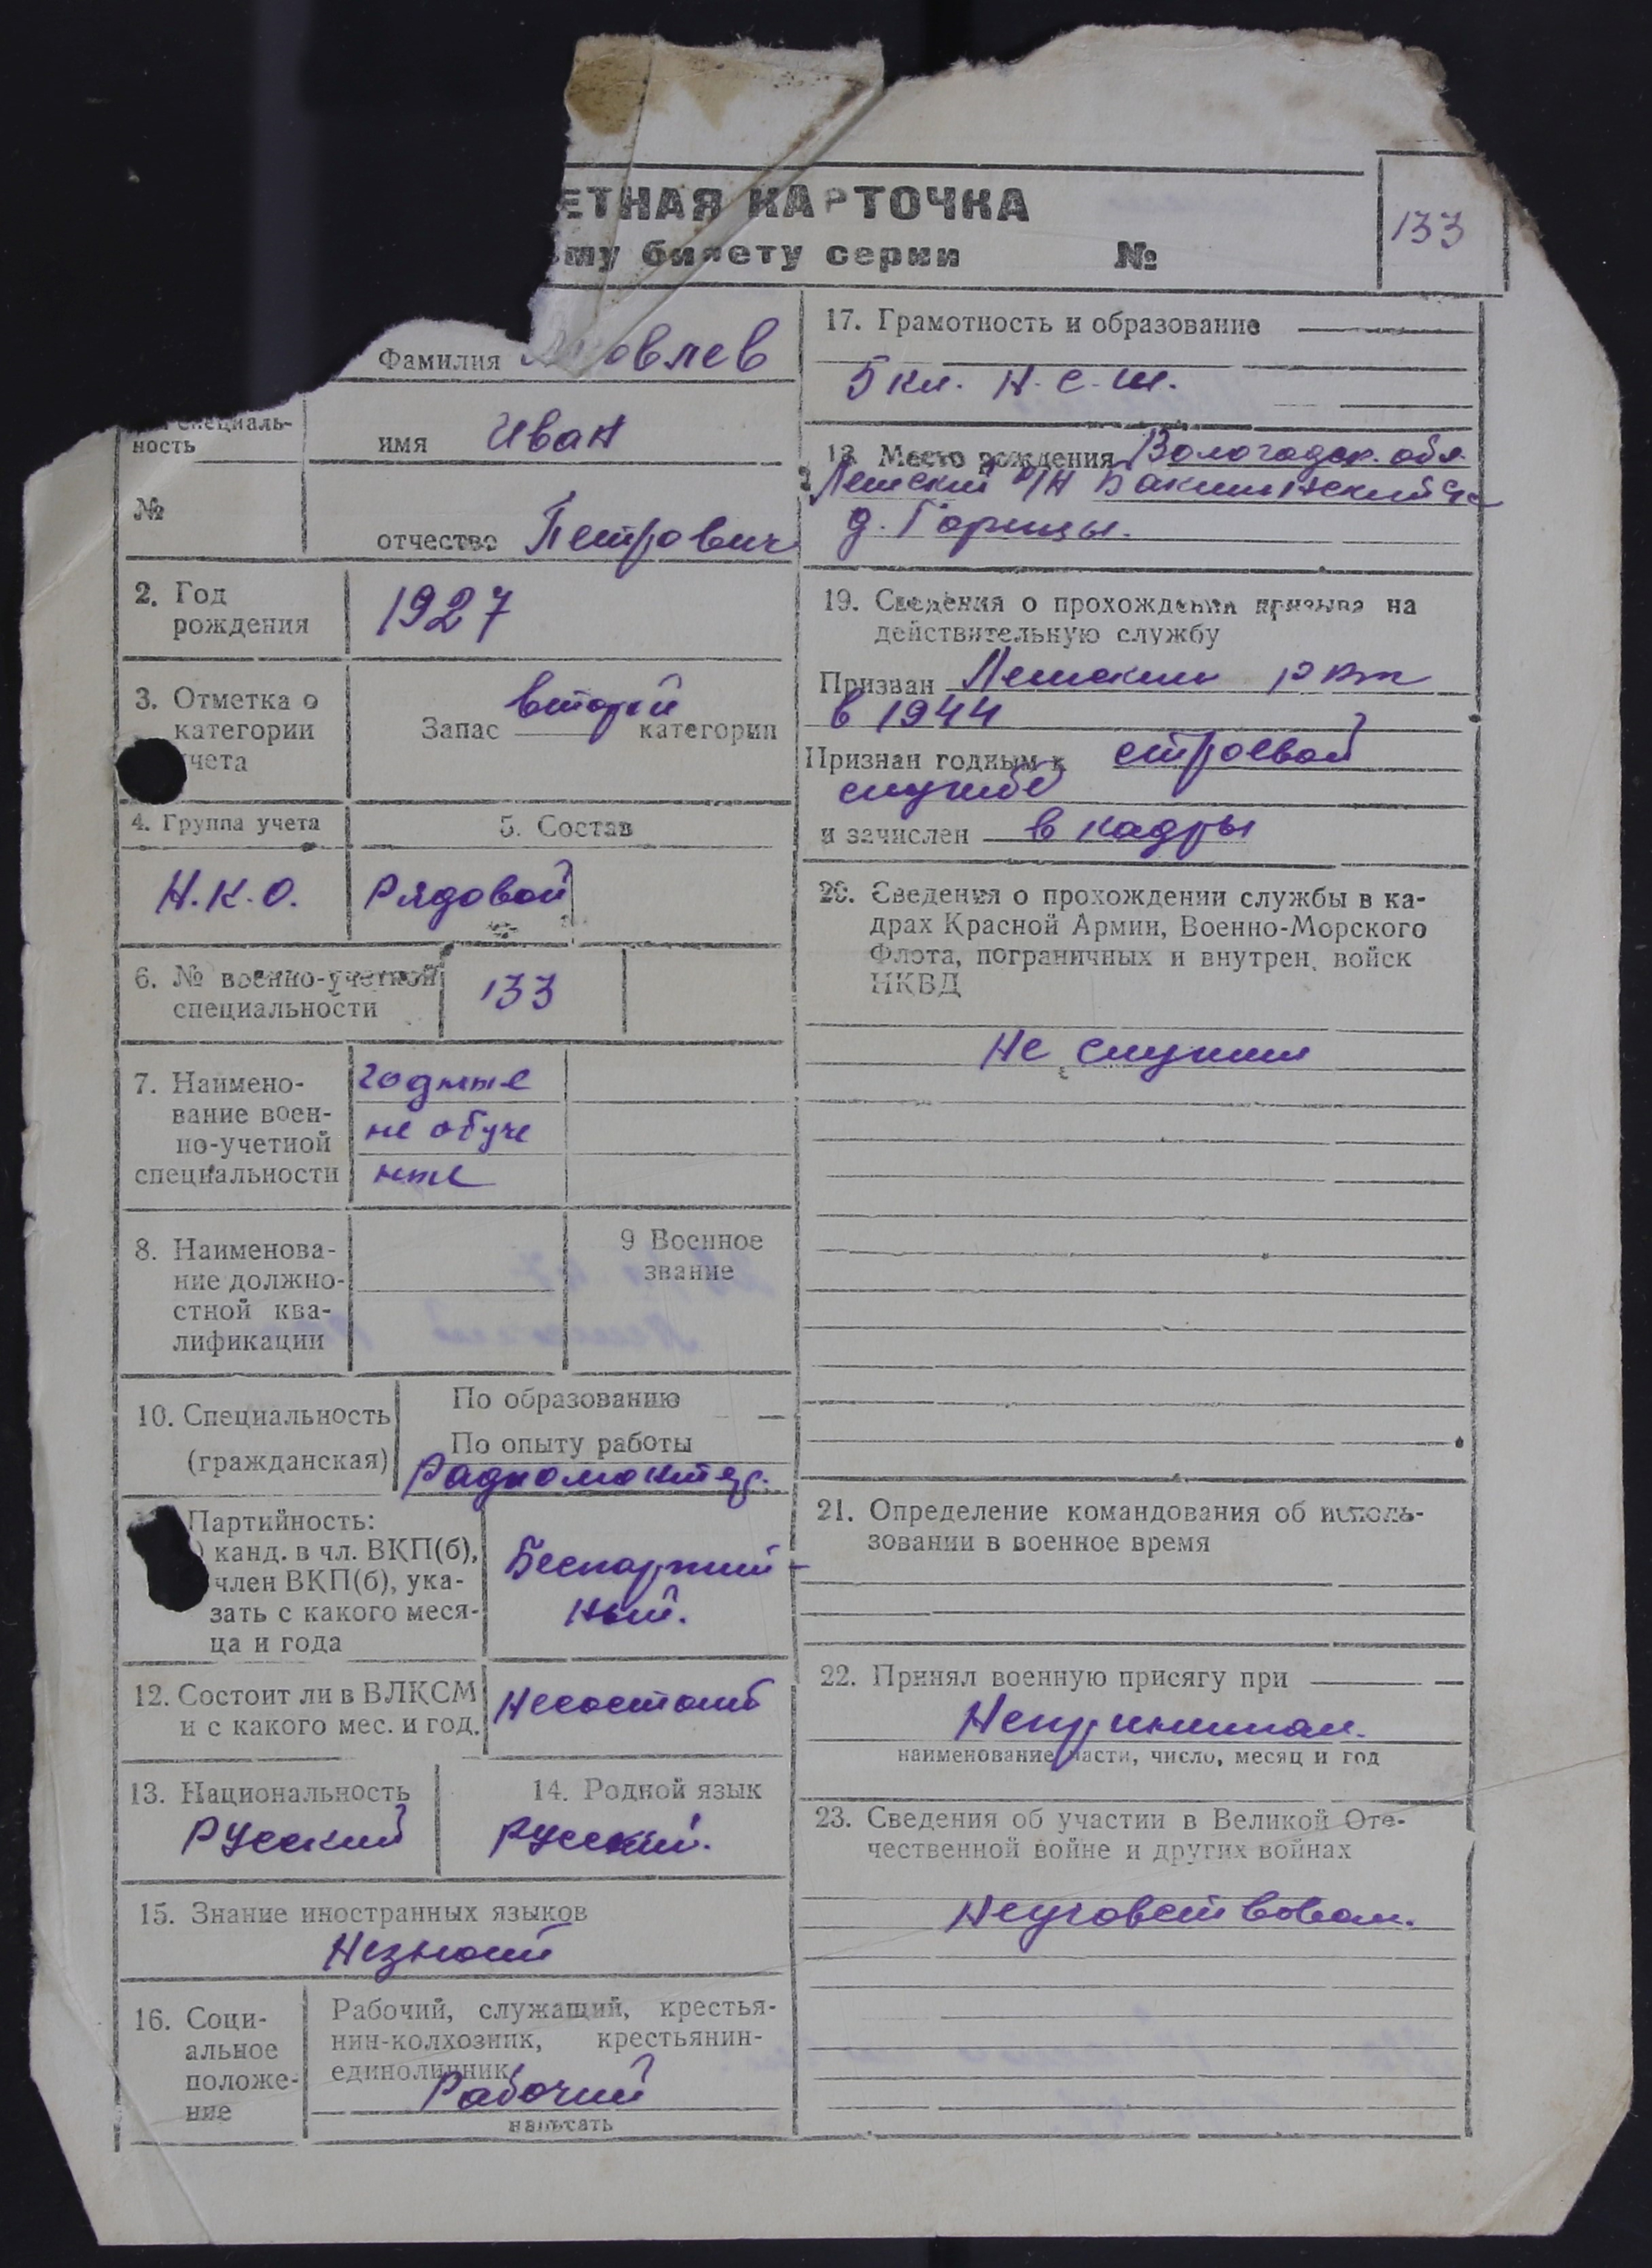 ЕТНАЯ КАРТОЧКА
му билету серии №
133
Фамилия овлев
специаль-
ность
имя Иван
№
отчество Петрович
2. Год
рождения
1927
3. Отметка о
категории
чета
Запас второй категории
4. Группа учета
Н.К.О.
5. Состав
Рядовой
6. № военно-учетной
специальности
133
7. Наимено-
вание воен-
но-учетной
специальности
годные
не обуче
ные
8. Наименова-
ние должно-
стной ква-
лификации
9 Военное
звание
10. Специальность
(гражданская)
По образованию —
По опыту работы
Радиомонтер.
Партийность:
) канд. в чл. ВКП(б),
член ВКП(б), ука-
зать с какого меся-
ца и года
Беспартий-
ный.
12. Состоит ли в ВЛКСМ
и с какого мес. и год.
Несостоит
13. Национальность
Русский
14. Родной язык
русский.
15. Знание иностранных языков
Незнает
16. Соци-
альное
положе-
ние
Рабочий, служащий, крестья-
нин-колхозник, крестьянин-
единоличник
Рабочий
написать
17. Грамотность и образование
5 кл. Н.С.Ш.
18. Место рождения Вологодск. обл.
р/н
д. Горицы.
19. Сведения о прохождении призыва на
действительную службу
Призван
в 1944
Признан годным к строевой
службе
и зачислен в кадры
20. Сведения о прохождении службы в ка-
драх Красной Армии, Военно-Морского
Флота, пограничных и внутрен. войск
НКВД
Не служил
21. Определение командования об исполь-
зовании в военное время
22. Принял военную присягу при
Непринимал.
наименование части, число, месяц и год
23. Сведения об участии в Великой Оте-
чественной войне и других войнах